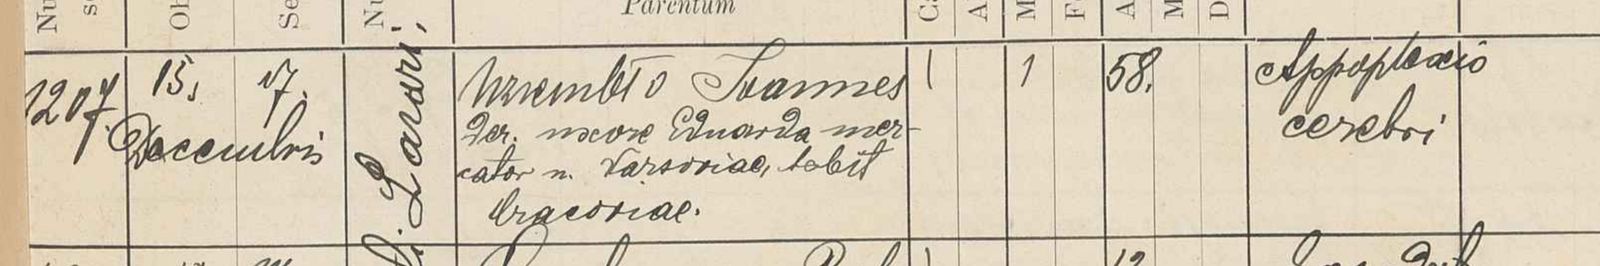 Nu
Ob
Se
Nu
Parentum
Ca
A
M
F
A
M
D
1207.
15.
17.
Decembris
Lazari,
Joannes
1
1
58.
Appoplexio
der. uxore Eduarda mer-
cerebri
cator n. Varsoviae, habit
Cracoviae.